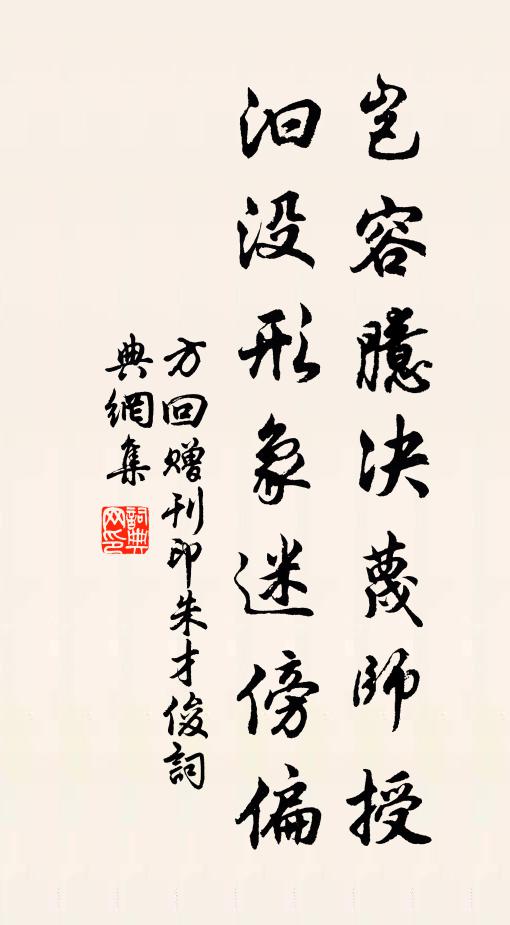 岂容臆决蔑师授
汩没形象迷傍偏
方回赠刊印朱才俊詞
典網集
詞典网印